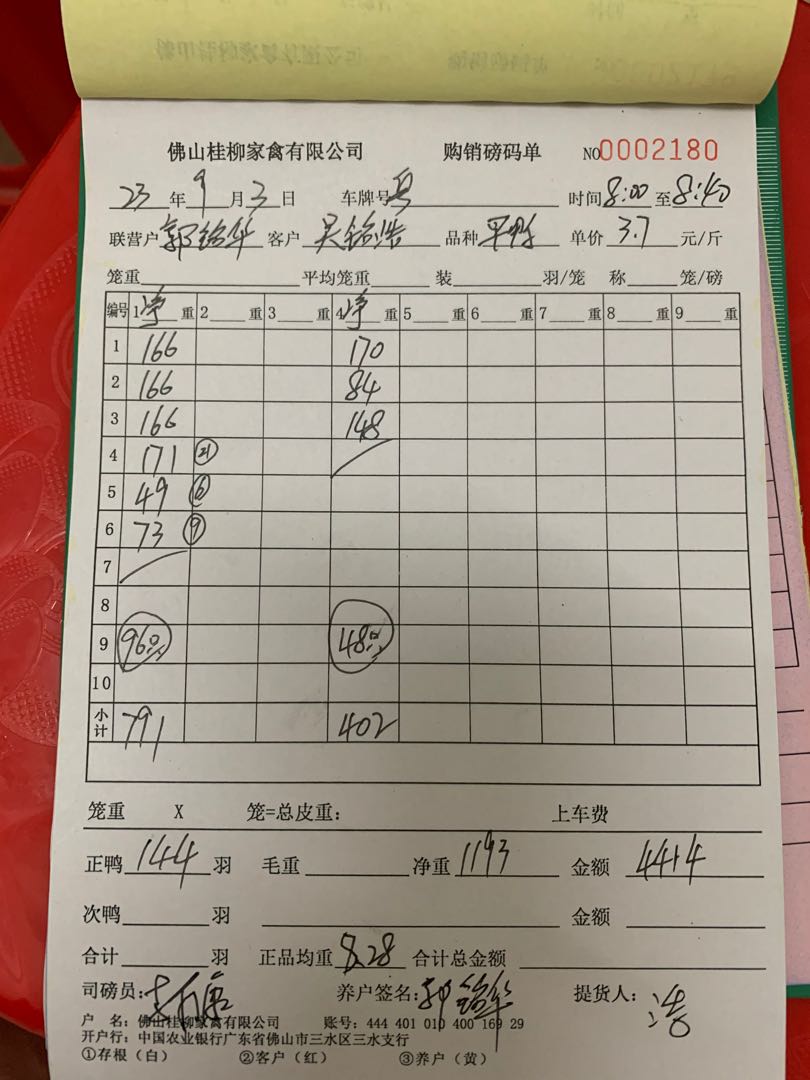 佛山桂柳家禽有限公司 购销磅码单 NO0002180
23年9月3日 车牌号 时间8:00至8:40
联营户郭铭华 客户吴铭浩 品种 单价3.7元/斤
笼重 平均笼重 装 羽/笼 称 笼/磅
编号 1净重 2 重 3 重 4净重 5 重 6 重 7 重 8 重 9 重
1 166 170
2 166 84
3 166 148
4 171 21
5 49 6
6 73 9
7
8
9 96只 48只
10
小计 791 402
笼重 X 笼=总皮重: 上车费
正鸭144羽 毛重 净重1193 金额4414
次鸭 羽 金额
合计 羽 正品均重8.28 合计总金额
司磅员: 养户签名:郭铭华 提货人:浩
户 名:佛山桂柳家禽有限公司 账号:444 401 010 400 169 29
开户行:中国农业银行广东省佛山市三水区三水支行
①存根(白) ②客户(红) ③养户(黄)